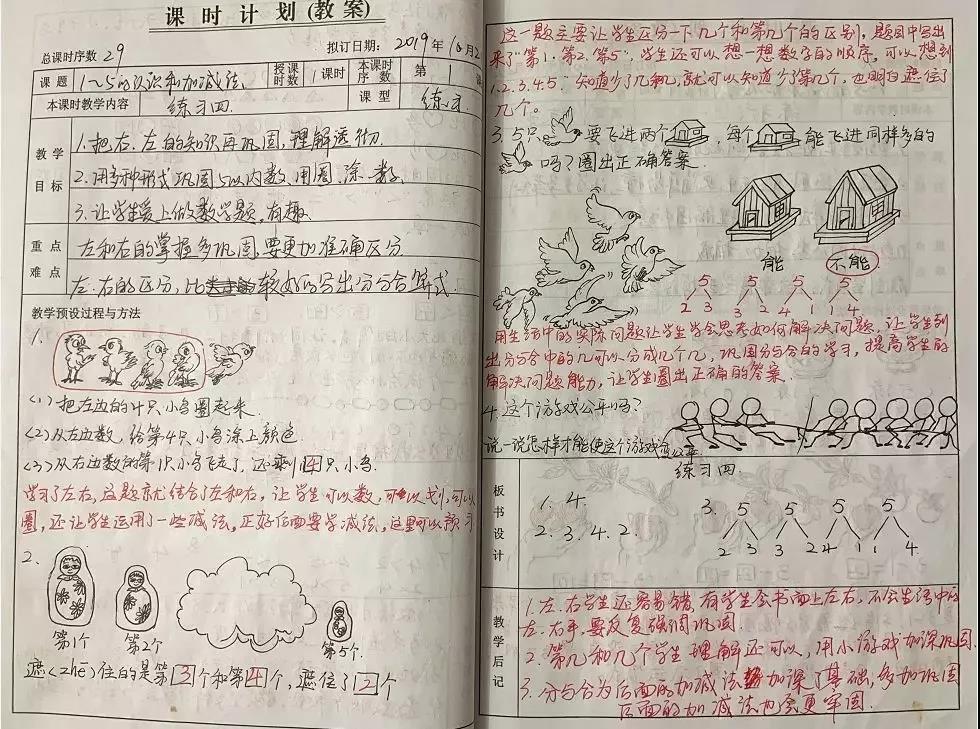 课时计划(教案)
总课时序数 29 拟订日期: 2019年10月2
课题 1~5的认识和加减法 授课时数 1课时 本课时序数 第 1
本课时教学内容 练习四 课型 练习
教学目标
1.把右、左的知识再巩固,理解透彻.
2.用多种形式巩固5以内数,用圈、涂、数
3.让学生爱上做数学题,有趣.
重点难点
左和右的掌握多巩固,要更加准确区分
左.右的区分,比较好的写出分与合算式.
教学预设过程与方法
1.
<1>把左边的4只小鸟圈起来.
<2>从左边数,给第4只小鸟涂上颜色
<3>从右边数的第1只小鸟飞走了,还剩4只小鸟.
学习了左右,这题就结合了左和右,让学生可以数,可以划,可以
圈,还让学生运用了一些减法,正好后面要学减法,这里可以预习
2.
第1个 第2个 第5个.
遮<zhē>住的是第3个和第4个,遮住了2个
这一题主要让学生区分一下几个和第几个的区别,题目中写出
来了"第1、第2、第5",学生还可以想一想数字的顺序,可以想到
1.2.3.4.5.知道少了几和几,就可以知道少了第几个,也明白遮住了
几个。
3.5只 要飞进两个 ,每个 能飞进同样多的
吗?圈出正确答案.
能 不能
5 5 5 5
2 3 3 2 4 1 1 4
用生活中的实际问题让学生学会思考如何解决问题,让学生列
出分与合中的几可以分成几个几,巩固分与合的学习,提高学生的
解决问题能力,让学生圈出正确的答案.
4.这个游戏公平吗?
说一说怎样才能使这个游戏公平.
板书设计
练习四
1. 4. 3. 5 5 5 5
2. 3. 4. 2. 2 3 3 2 4 1 1 4
教学后记
1.左、右学生还容易错,有学生会书面上左右,不会生活中的
左.右手,要反复强调巩固.
2.第几和几个学生理解还可以,用小游戏加深巩固.
3.分与合为后面的加减法加深了基础,多加巩固
后面的加减法为会更牢固.